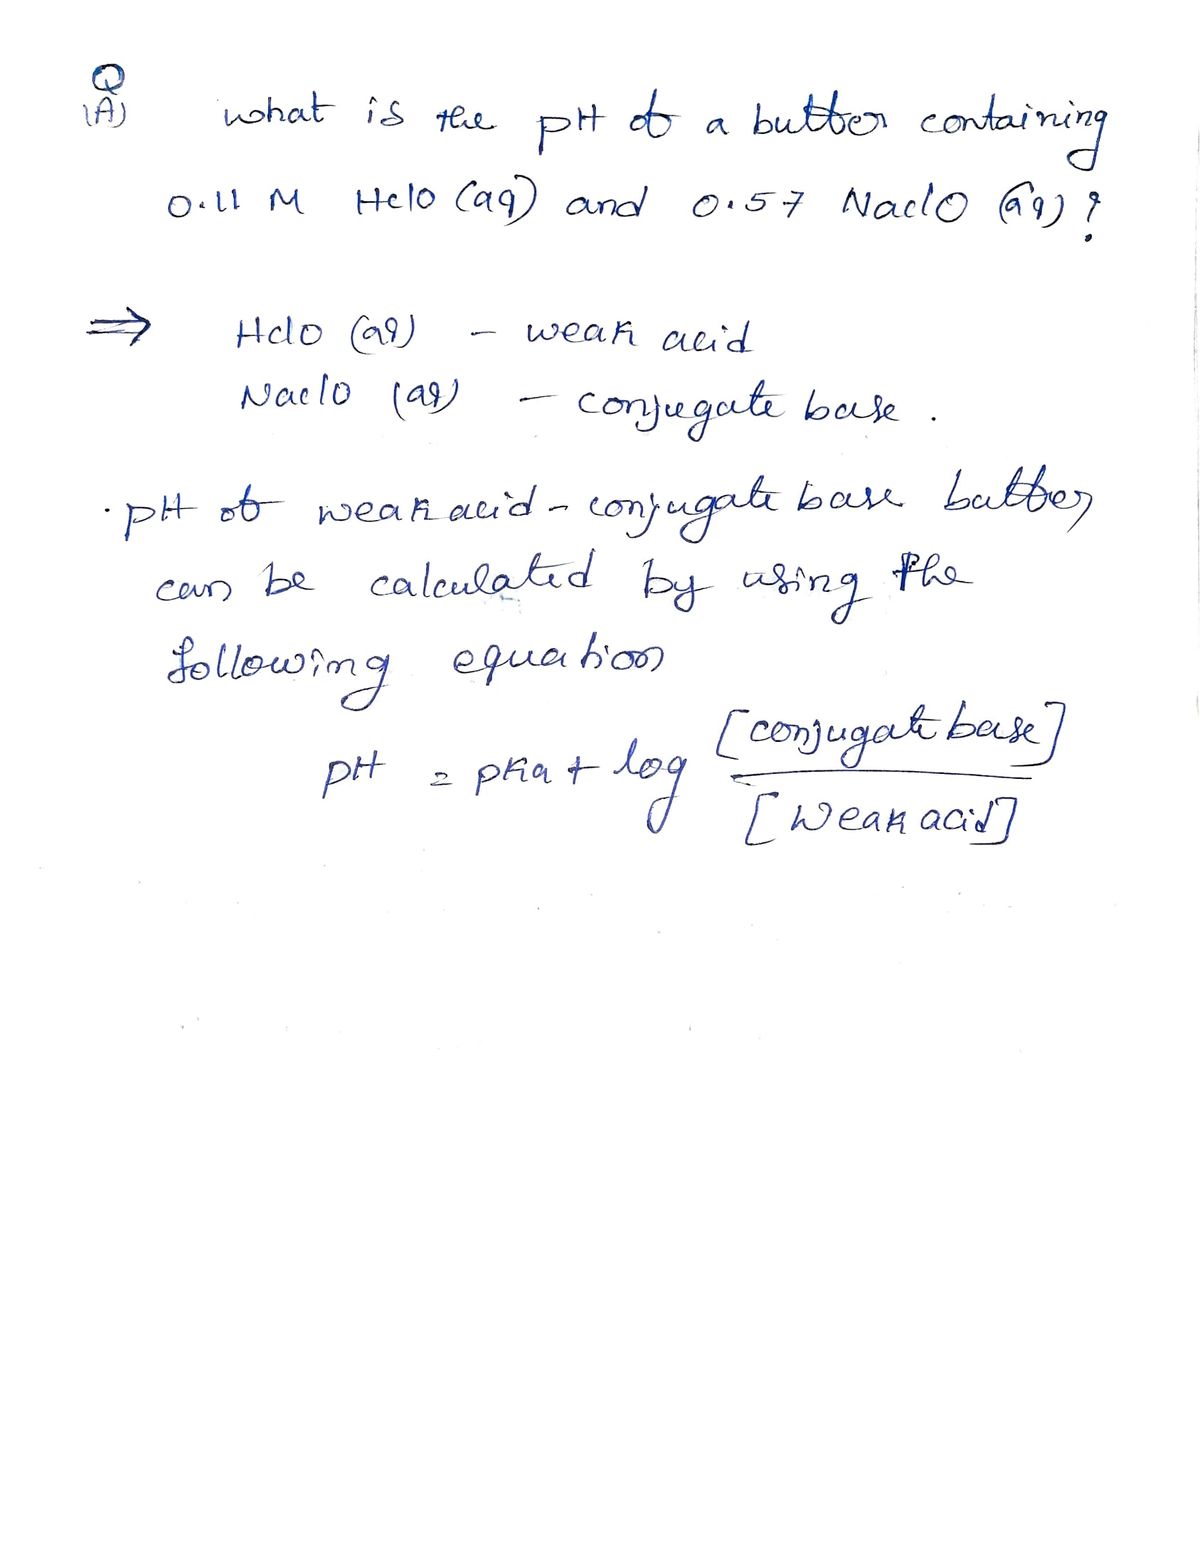 Q
(A) what is the pH of a buffer containing
0.11 M HclO (aq) and 0.57 NaclO (aq) ?
⇒ HclO (aq) - weak acid
NaclO (aq) - conjugate base .
· pH of weak acid - conjugate base buffer
can be calculated by using the
following equation
pH = pKa + log [conjugate base]
[weak acid]